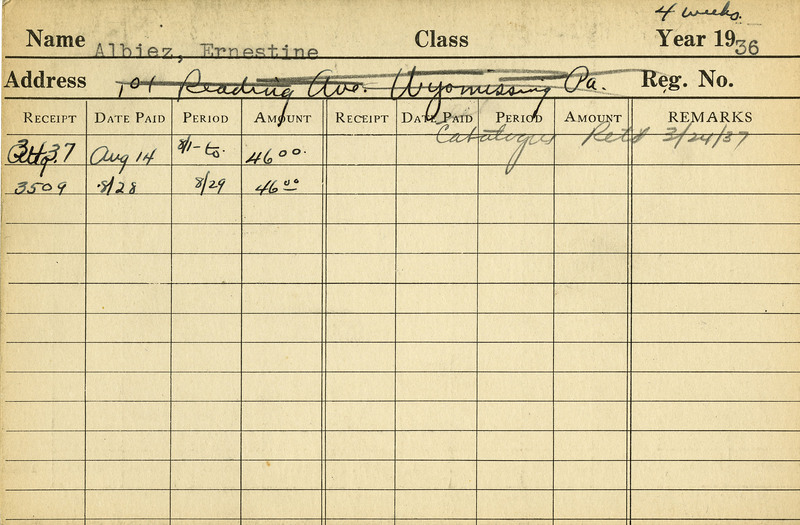 4 weeks.
Name Albiez, Ernestine Class Year 1936
Address 101 Reading Ave. Wyomissing Pa. Reg. No.
RECEIPT DATE PAID PERIOD AMOUNT RECEIPT DATE PAID PERIOD AMOUNT REMARKS
Catalogue Ret'd 3/24/37
3437 Aug 14 8/1-to. 46 00.
3509 8/28 8/29 46 00